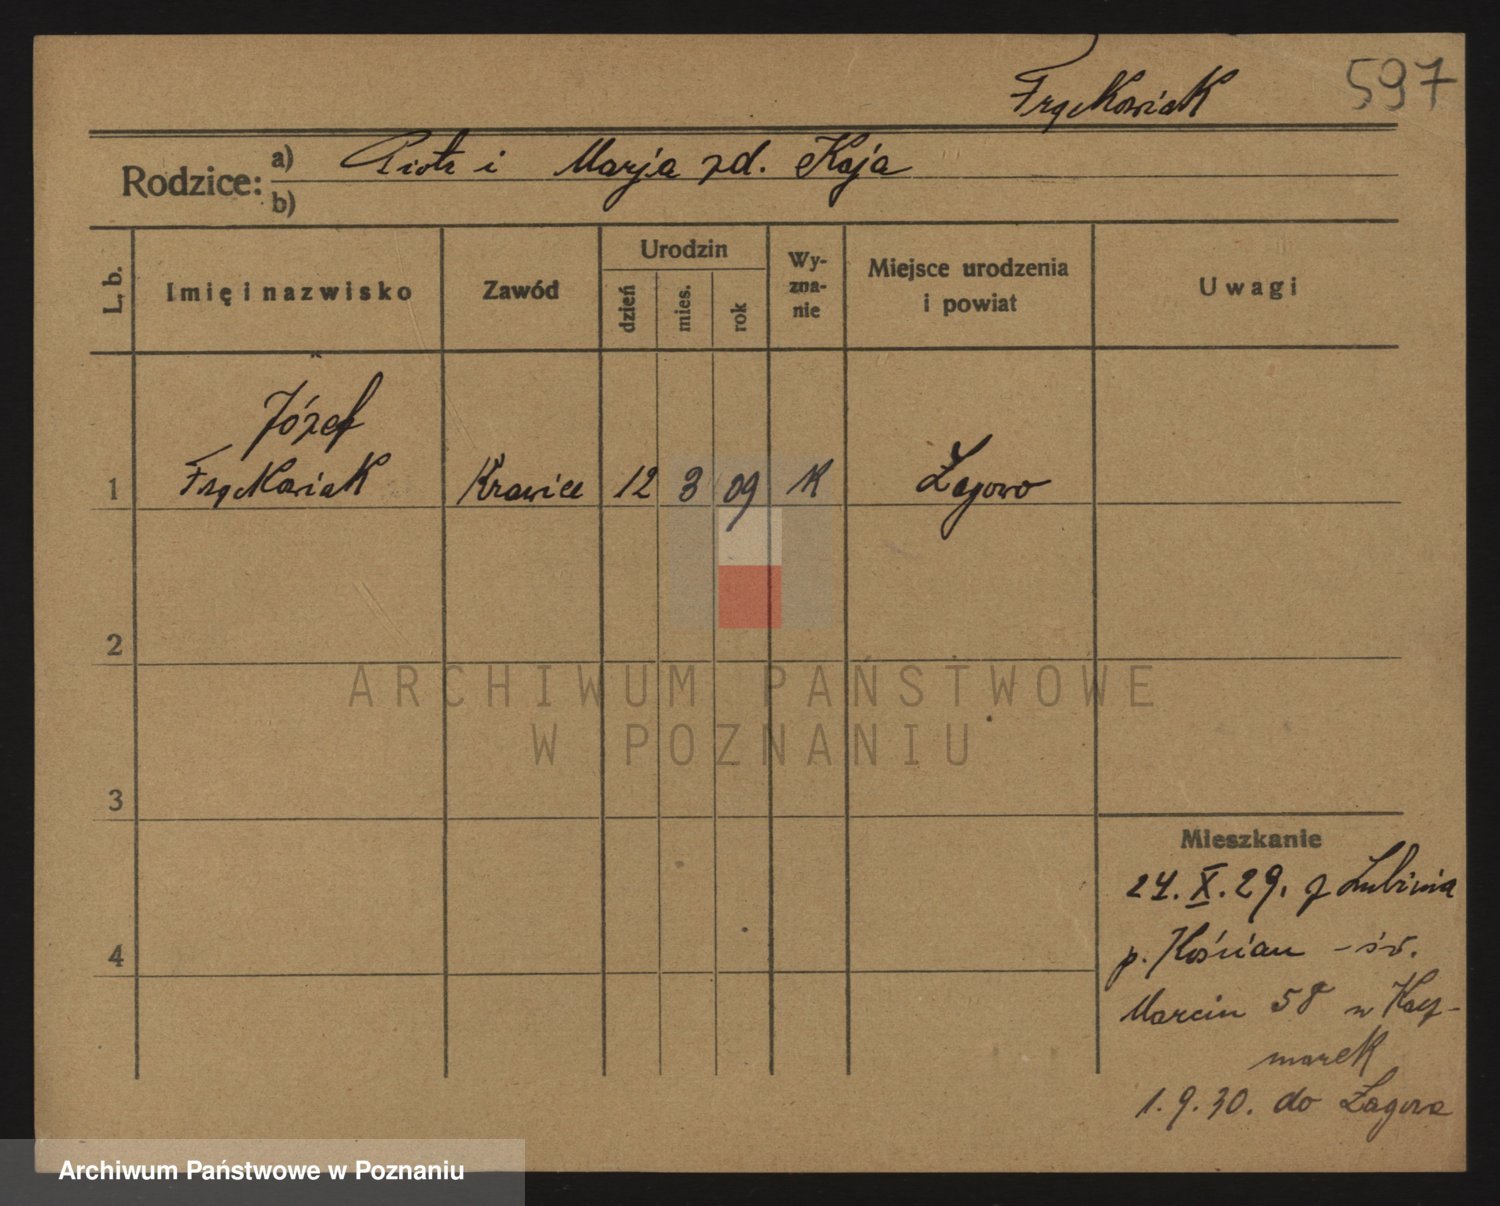 Frąckowiak 597
Rodzice: a) Piotr i Marja zd. Kaja
b)
L. b. Imię i nazwisko Zawód Urodzin dzień mies. rok Wy-zna-nie Miejsce urodzenia i powiat Uwagi
Józef
1 Frąckowiak Krawiec 12 3 09 K Żegowo
2
ARCHIWUM PAŃSTWOWE
W POZNANIU
3
Mieszkanie
24. X. 29. z Lubinia
4 p. Kościan - św.
Marcin 58 u Kacz-
marek
1. 9. 30. do Żegowa
Archiwum Państwowe w Poznaniu